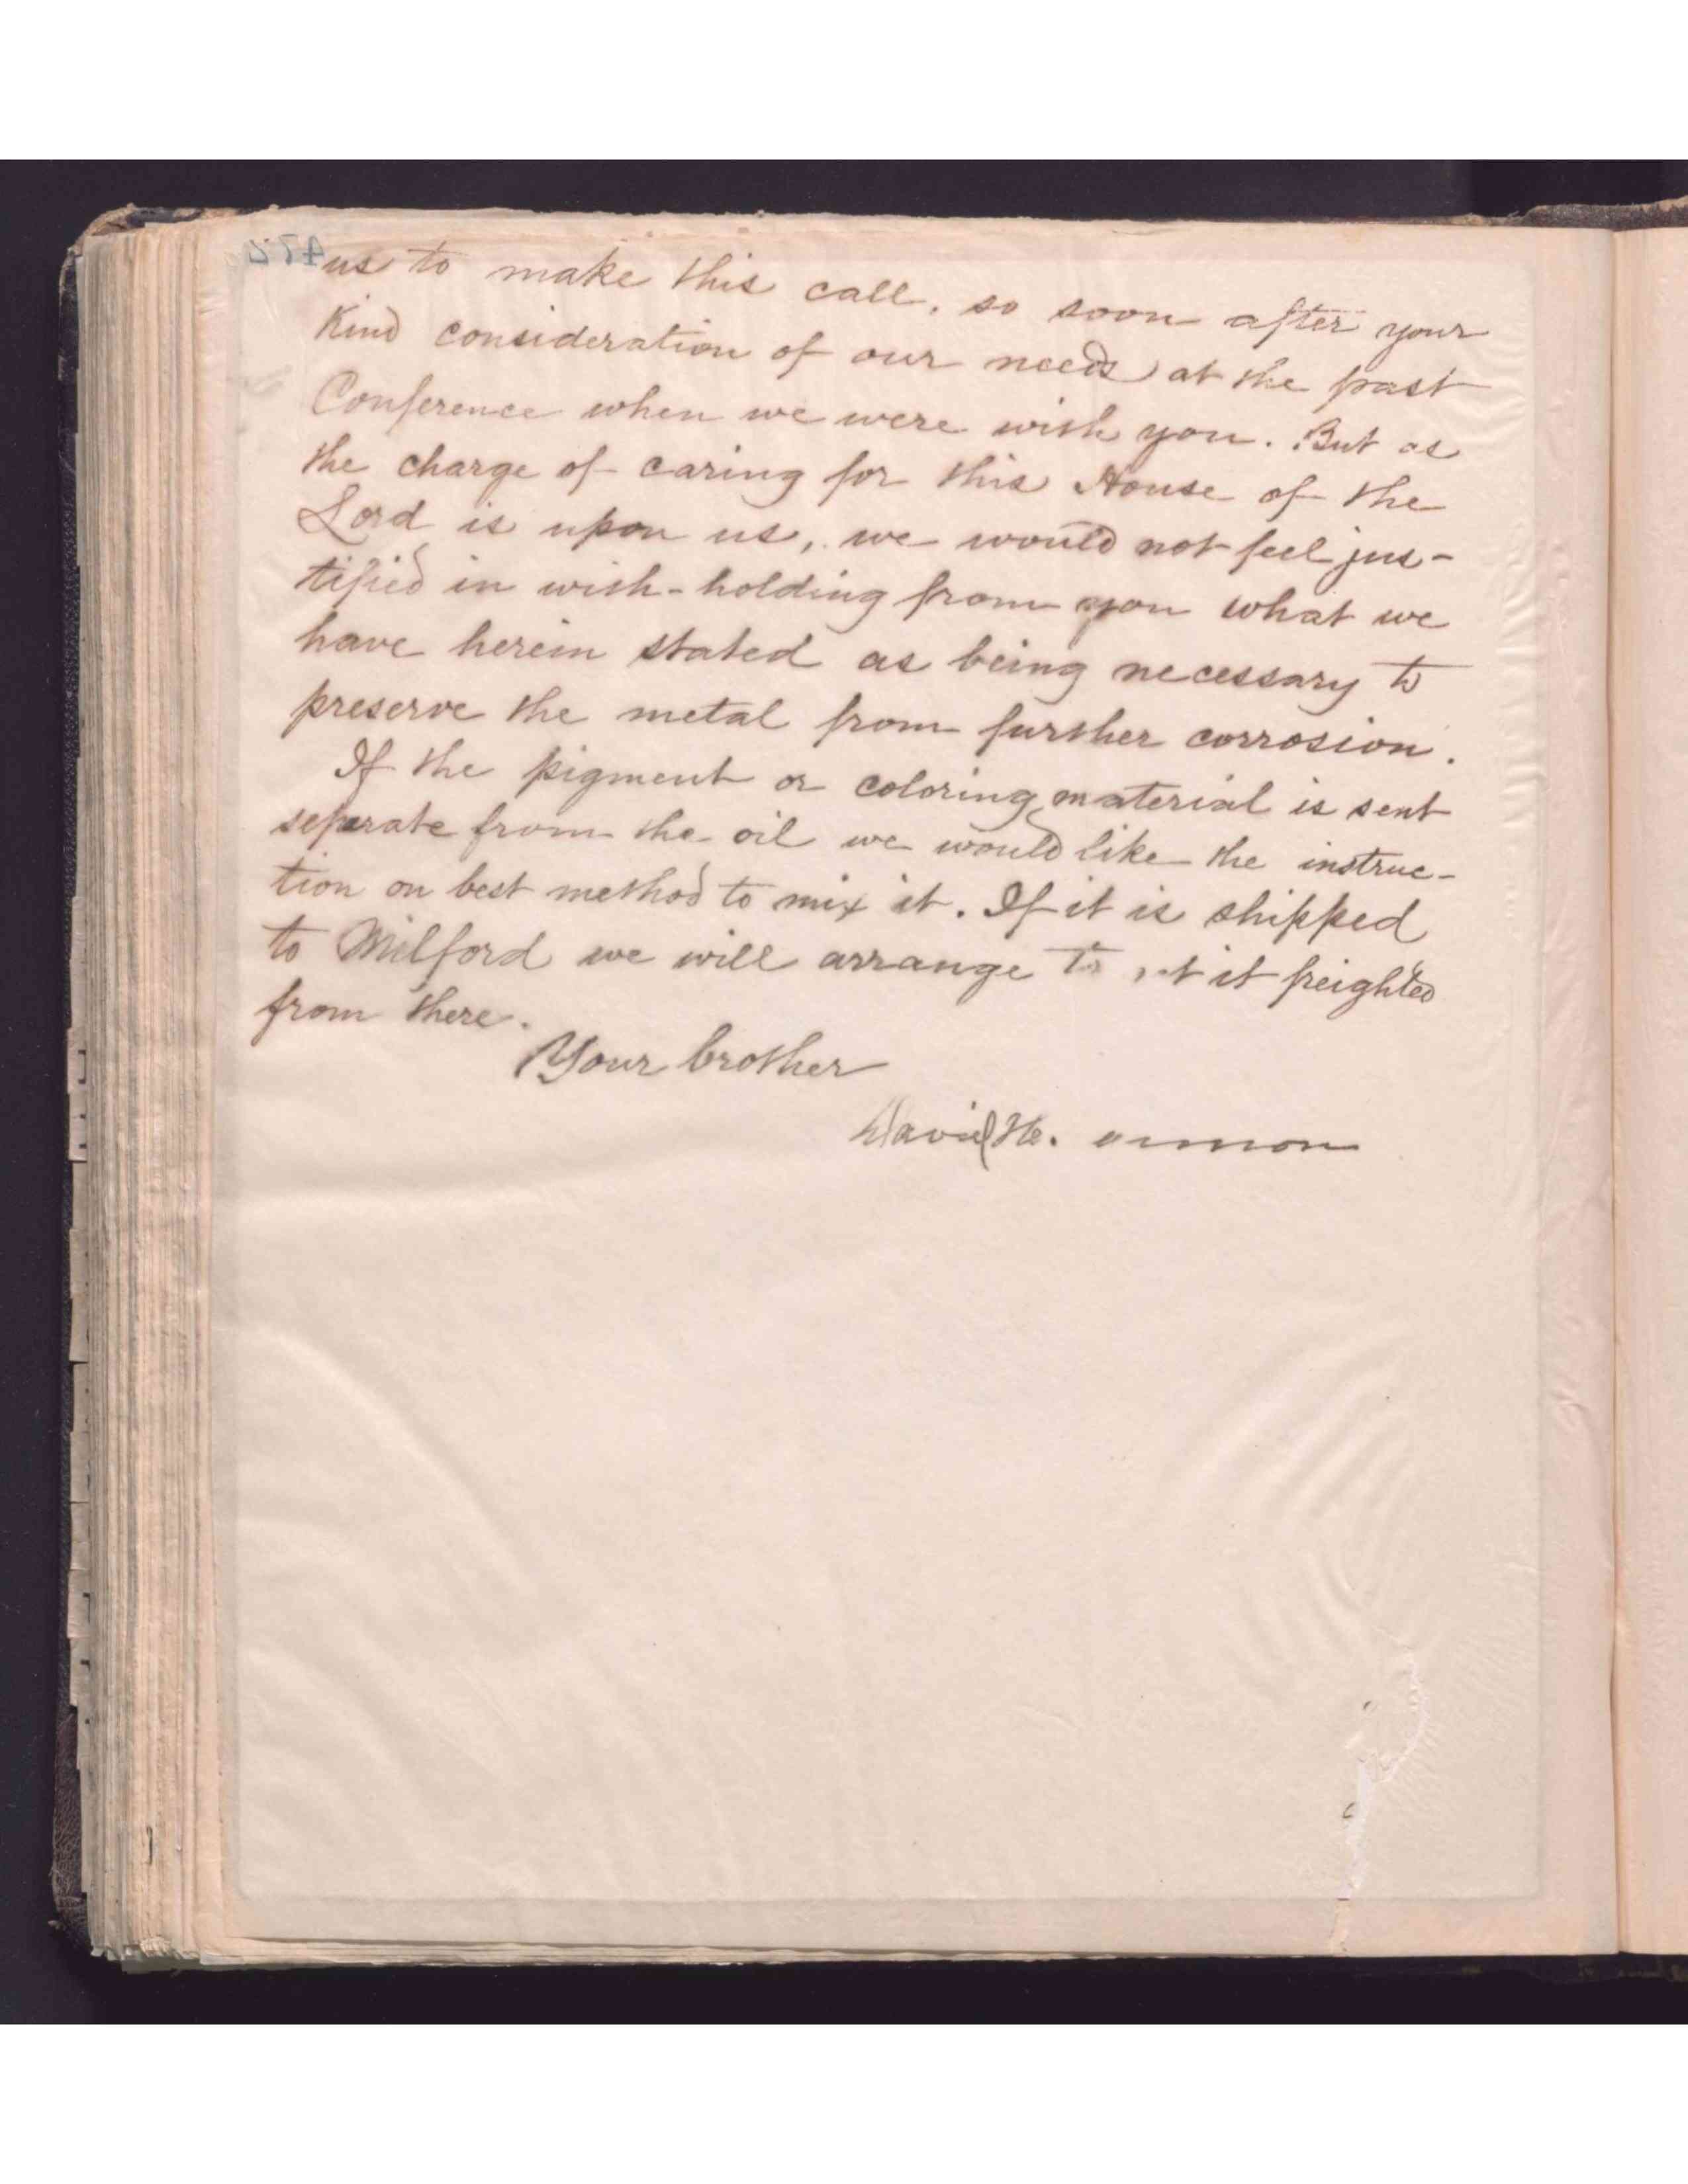 us to make this call, so soon after your
kind consideration of our needs at the past
Conference when we were with you. But as
the charge of caring for this House of the
Lord is upon us, we would not feel jus-
tified in with-holding from you what we
have herein stated as being necessary to
preserve the metal from further corrosion.
If the pigment or coloring material is sent
seperate from the oil we would like the instruc-
tion on best method to mix it. If it is shipped
to Milford we will arrange to it freighted
from there.
Your brother
David H.